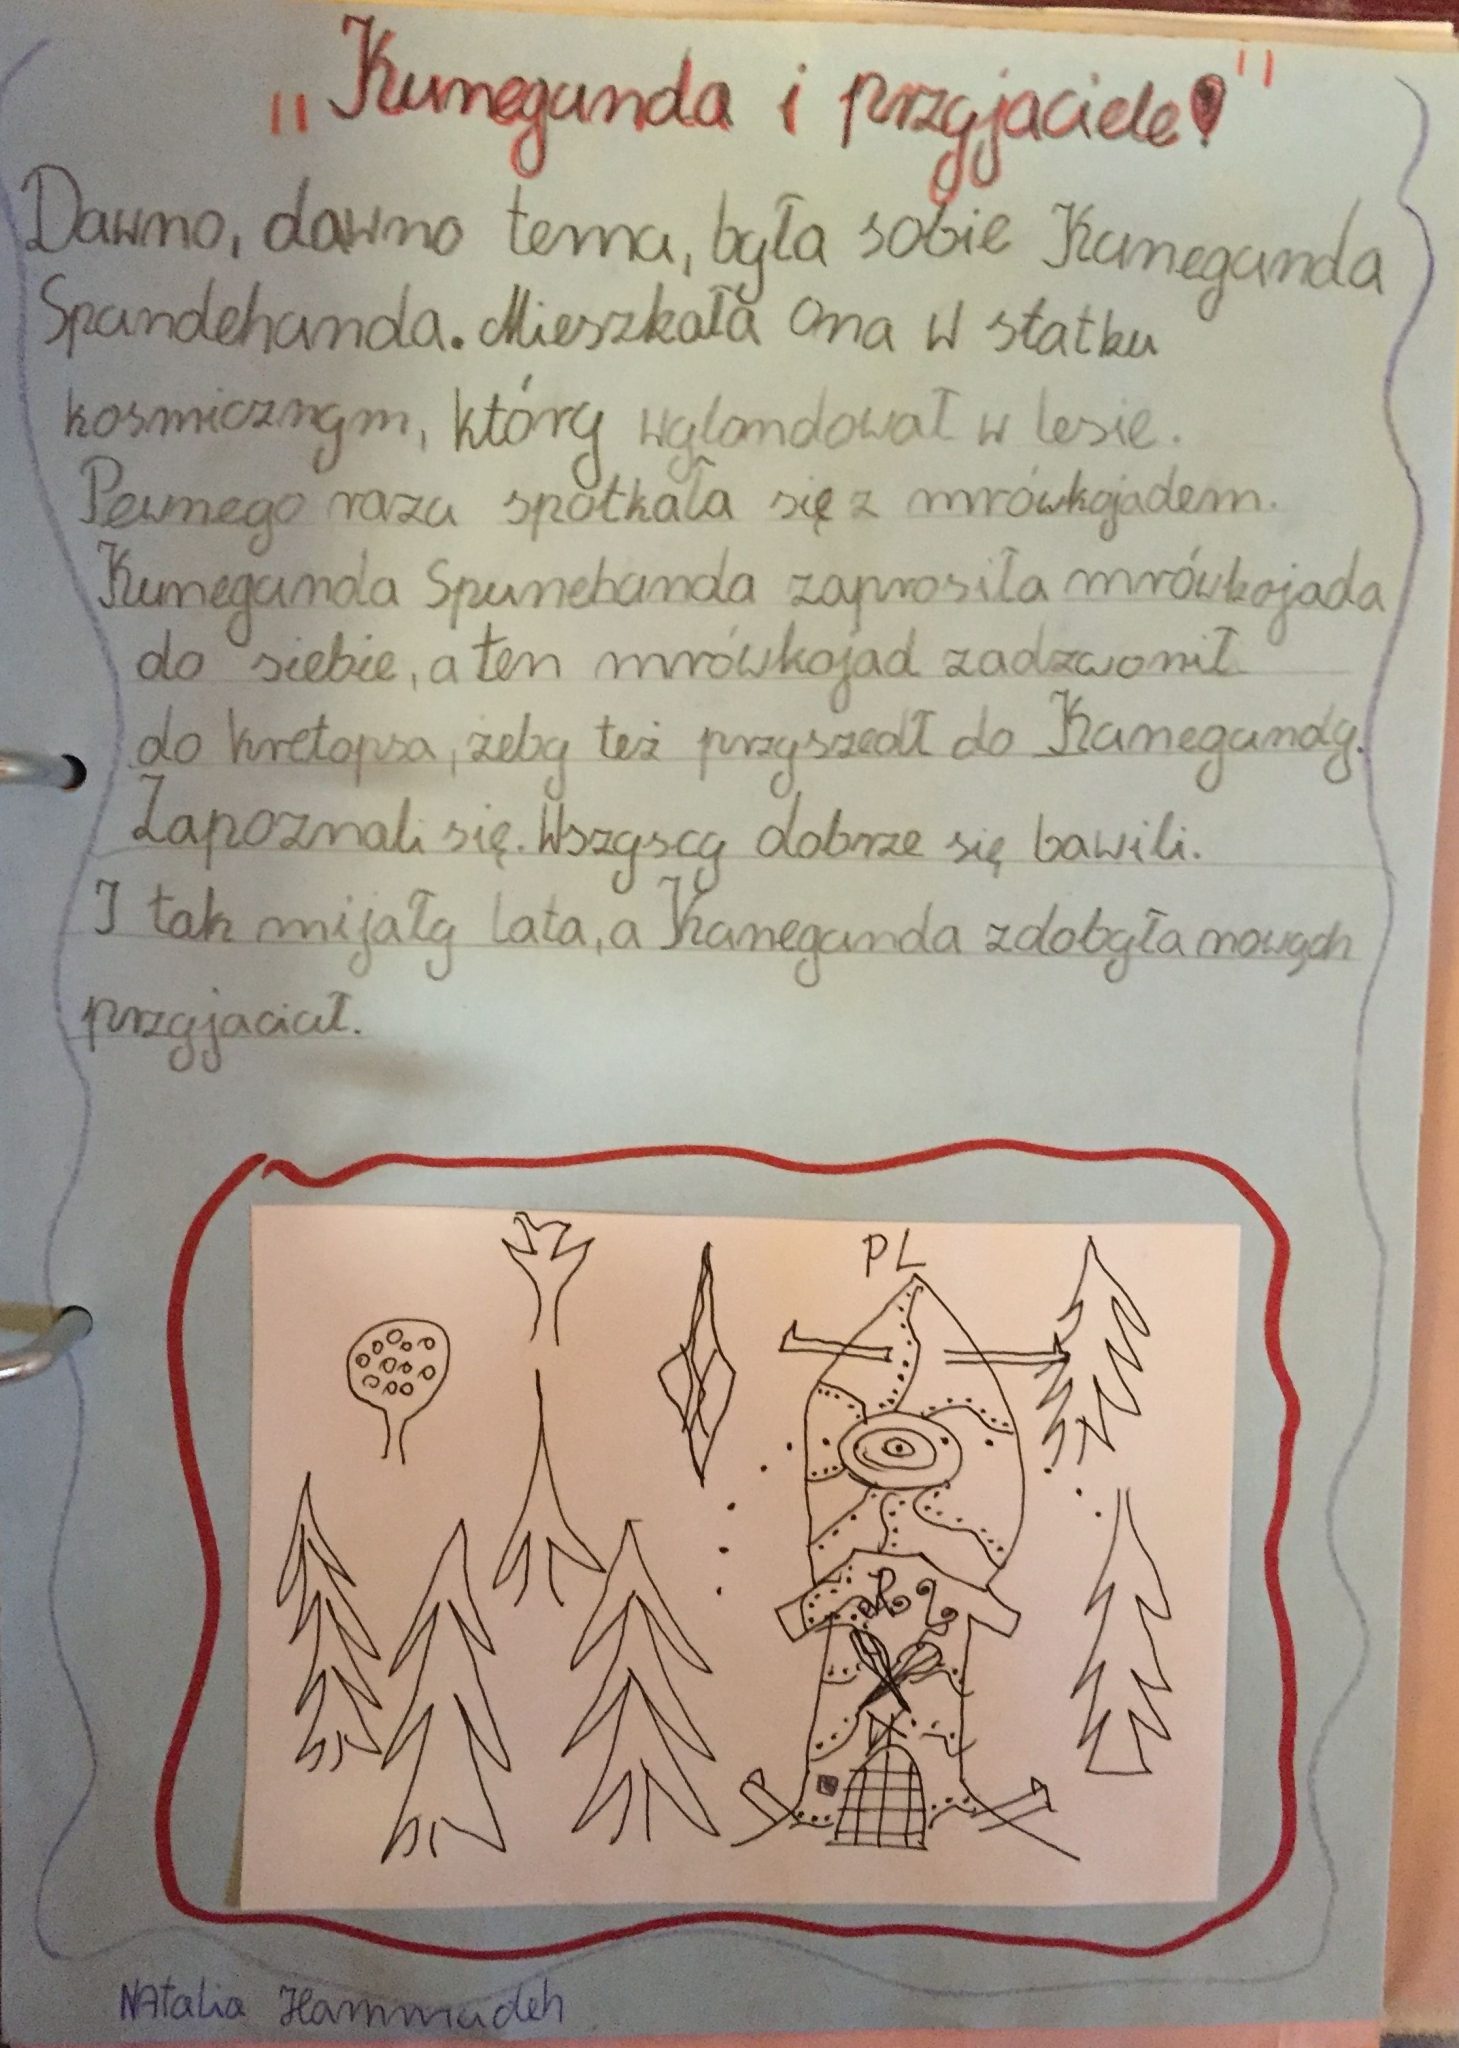 „Kunegunda i przyjaciele"
Dawno, dawno temu, była sobie Kunegunda
Spundehunda. Mieszkała Ona w statku
kosmicznym, który wylondował w lesie.
Pewnego razu spotkała się z mrówkojadem.
Kunegunda Spunehunda zaprosiła mrówkojada
do siebie, a ten mrówkojad zadzwonił
do kretopsa, żeby też przyszedł do Kunegundy.
Zapoznali się. Wszyscy dobrze się bawili.
I tak mijały lata, a Kunegunda zdobyła nowych
przyjaciuł.
PL
NAtalia Hammudeh